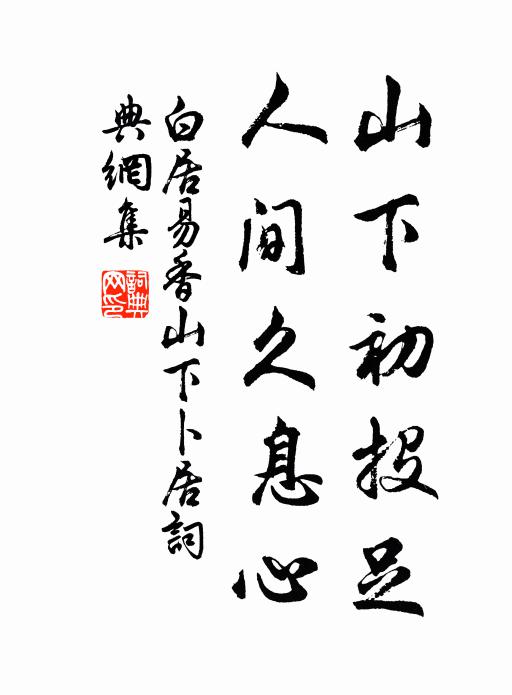 山下初投足
人间久息心
白居易香山下卜居詞
典網集
詞典
网印